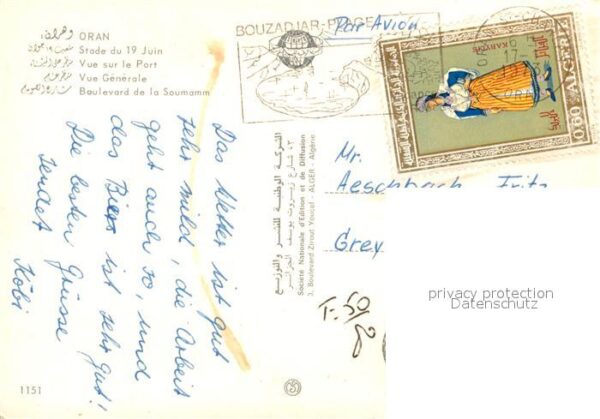 وهران، ORAN
Stade du 19 Juin
Vue sur le Port
Vue Générale
Boulevard de la Soumamm
BOUZADJAR-PLAGE
Par Avion
KABYLIE
0,60 ALGERIE
Das Wetter ist gut
sehr mild, die Arbeit
geht auch so, und
das Bier ist sehr gut!
Die besten Grüsse
sendet
Köbi
الشركة الوطنية للنشر والتوزيع
٣، شارع زيروت يوسف الجزائر
Société Nationale d'Edition et de Diffusion
3, Boulevard Zirout Youcef - ALGER - Algérie
Mr.
Aeschbach Fritz
Grey
privacy protection
Datenschutz
1151